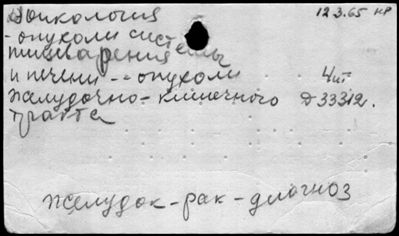 Онкология 12.3.65 КР
- опухоли системы
пищеварения
и печени -- опухоли 4 шт
желудочно-кишечного Д 33312.
тракта
желудок - рак - диагноз